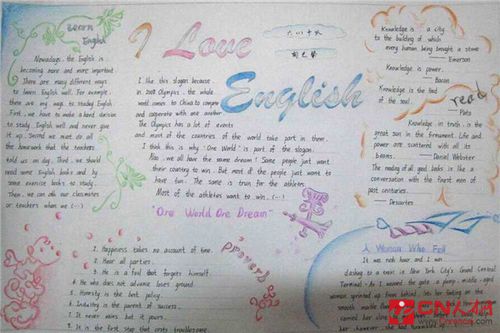 Learn
English
Nowadays, the English is
becoming more and more important
There are many different ways
to learn English well. For example.
there are my ways to studying English
First, we have to make a hard decision
to study English well and never give
it up. Second we must do all
the homework that the teachers
told us on day. Third, we should
need some English books and by
some exercise books to study.
Then, we can ask our classmates
or teachers when we (…)
I Love
English
I like this slogan because
in 2008 Olympics, the whole
world comes to China to compete
and cooperate with one another
The Olympics has a lot of events
and most of the countries of the world take part in them
I think this is why "One World" is part of the slogan.
Also, we all have the same dream! Some people just want
their country to win. But most of the people just want to
have fun. The same is true for the athletes.
Most of the athletes want to win, (…)
"One World One Dream"
Knowledge is a city
to the building of which
every human being brought a stone
—— Emerson
Knowledge is power.
—— Bacon
Knowledge is the food
of the soul.
—— Plato
read
Knowledge in truth, is the
great sun in the firmament. Life and
power are scattered with all its
beams.
—— Daniel Webster
The reading of all good books is like a
conversation with the finest men of
past centuries.
—— Descartes
proverbs
1. Happiness takes no account of time.
2. Hear all parties.
3. He is a fool that forgets himself.
4. He who does not advance loses ground.
5. Honesty is the best policy.
6. Industry is the parent of success.
7. It never rains but it pours.
8. It is the first step that costs troublesome
A Woman Who Fell
It was rush hour and I was
dashing to a train in New York City's Grand Central
Terminal. As I neared the gate, a plump, middle-aged
woman sprinted up from behind, lost her footing on the
smooth marble
CN人人